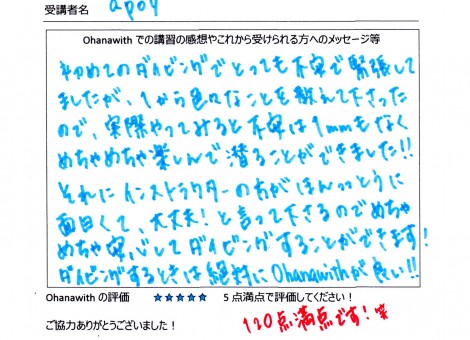 受講者名 apoy
Ohanawith での講習の感想やこれから受けられる方へのメッセージ等
初めてのダイビングでとっても不安で緊張して
ましたが、1から色々なことを教えて下さった
ので、実際やってみると不安は1mmもなく
めちゃめちゃ楽しんで潜ることができました!!
それにインストラクターの方がほんっっとうに
面白くて、大丈夫!と言って下さるのでめちゃ
めちゃ安心してダイビングすることができます!
ダイビングするときは絶対にOhanawithが良い!!
Ohanawith の評価 ★★★★★ 5 点満点で評価してください!
ご協力ありがとうございました! 120点満点です!笑